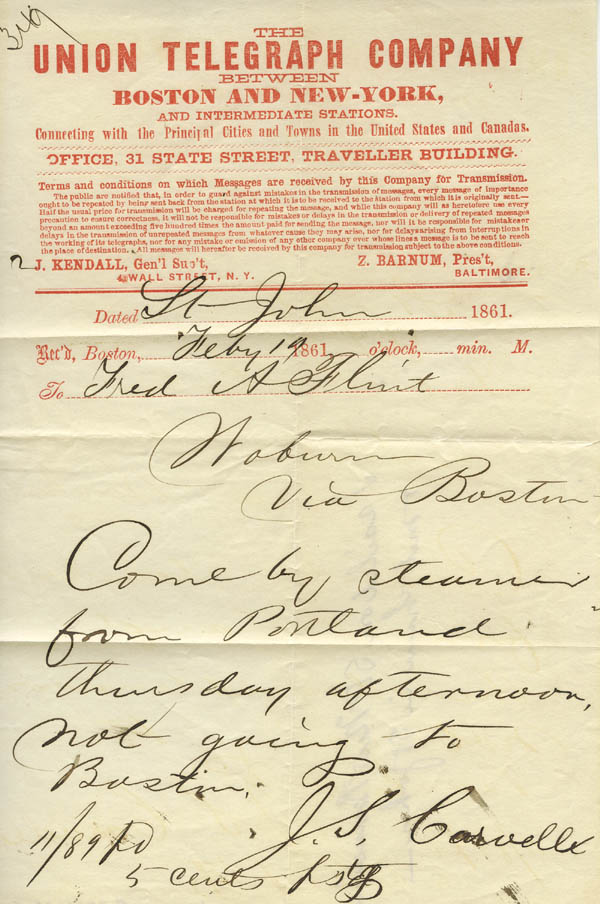 349
THE
UNION TELEGRAPH COMPANY
BETWEEN
BOSTON AND NEW-YORK,
AND INTERMEDIATE STATIONS.
Connecting with the Principal Cities and Towns in the United States and Canadas.
OFFICE, 31 STATE STREET, TRAVELLER BUILDING.
Terms and conditions on which Messages are received by this Company for Transmission.
The public are notified that, in order to guard against mistakes in the transmission of messages, every message of importance
ought to be repeated by being sent back from the station at which it is to be received to the station from which it is originally sent.—
Half the usual price for transmission will be charged for repeating the message, and while this company will as heretofore use every
precaution to ensure correctness, it will not be responsible for mistakes or delays in the transmission or delivery of repeated messages
beyond an amount exceeding five hundred times the amount paid for sending the message, nor will it be responsible for mistakes or
delays in the transmission of unrepeated messages from whatever cause they may arise, nor for delays arising from interruptions in
the working of its telegraphs, nor for any mistake or omission of any other company over whose lines a message is to be sent to reach
the place of destination. All messages will hereafter be received by this company for transmission subject to the above conditions.
J. KENDALL, Gen'l Sup't, Z. BARNUM, Pres't,
WALL STREET, N. Y. BALTIMORE.
Dated St John 1861.
Rec'd, Boston, Feby 19 1861 o'clock, min. M.
To Fred A Flint
Woburn
Via Boston
Come by steamer
from Portland
Thursday afternoon,
not going to
Boston.
J. S. Carvelle
11/89 pd
5 cents pstg